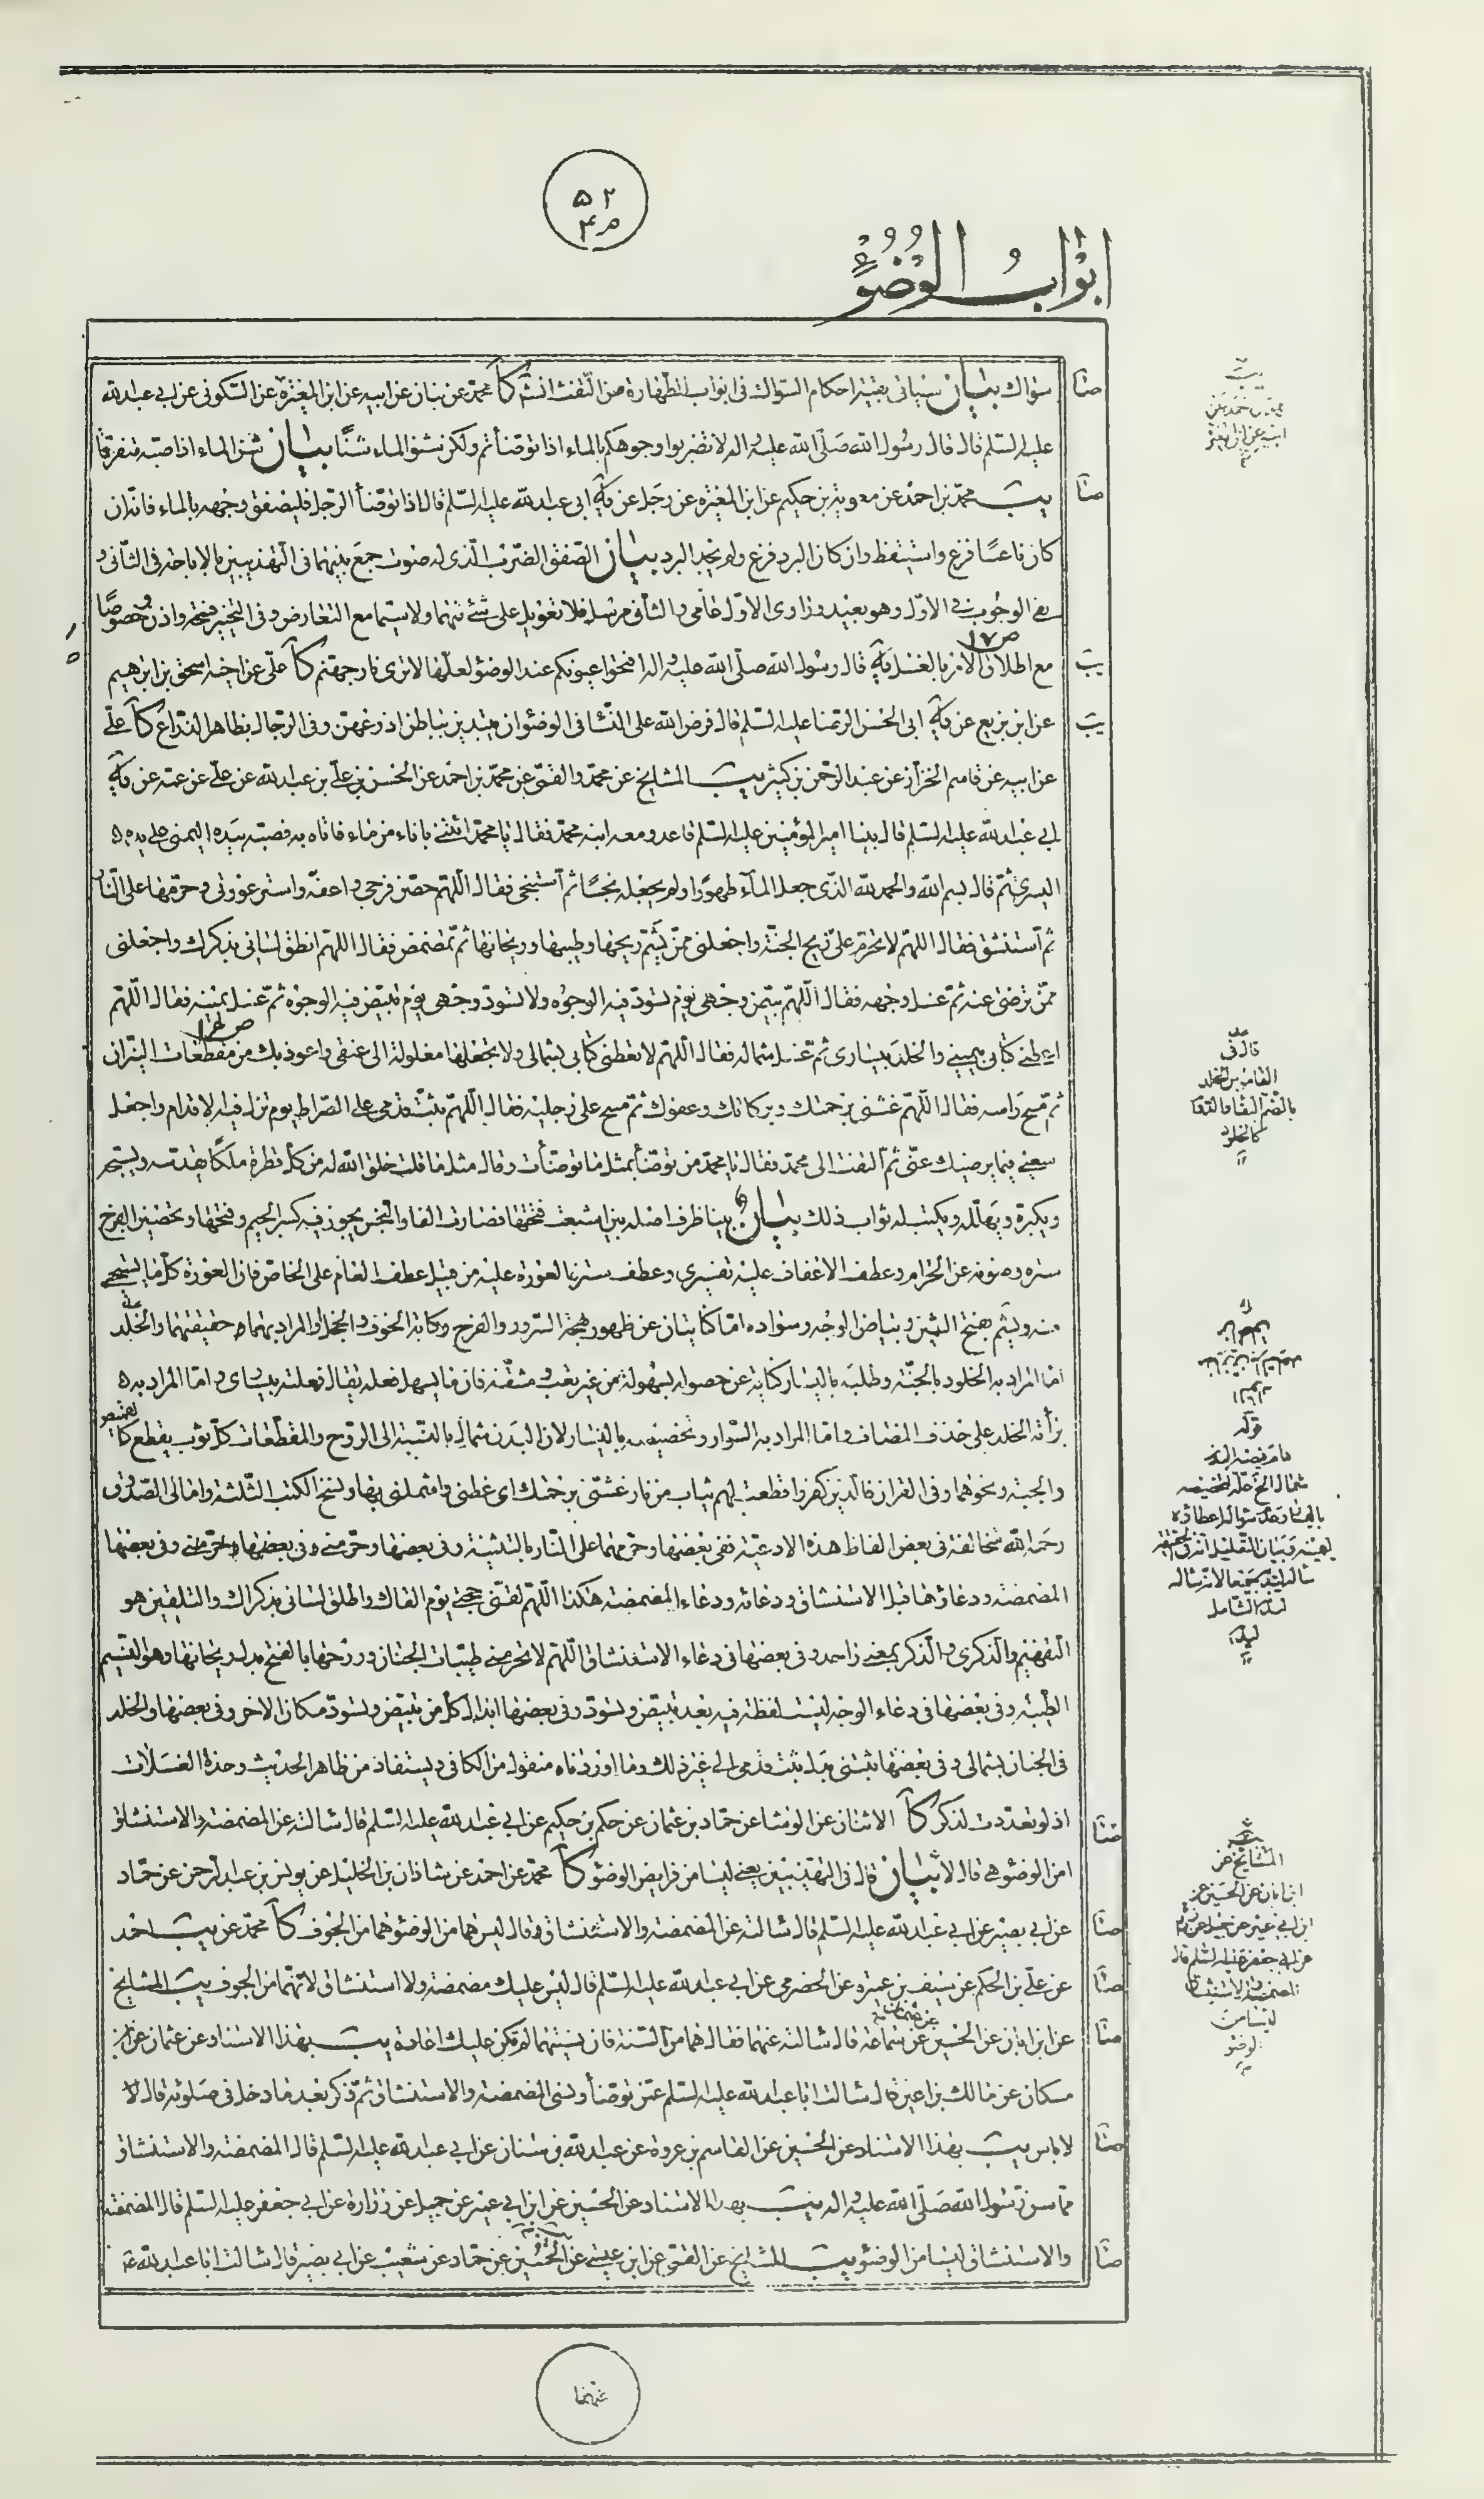 ۵۲
م۴
ابواب الوضوء
سواك بيان سياتي بقية احكام السواك في ابواب الطهارة من التفث انش كا محمد عن بنان عن ابيه عن ابن المغيرة عن السكوني عن ابي عبد الله
عليه السلم قال قال رسول الله صلى الله عليه واله لا تضربوا وجوهكم بالماء اذا توضأتم ولكن شنوا الماء شنا بيان شن الماء اذا صبه متفرقا
يب محمد بن احمد عن معوية بن حكيم عن ابن المغيرة عن رجل عن يه ابي عبد الله عليه السلم قال اذا توضأ الرجل فليصفق وجهه بالماء فانه ان
كان ناعسا فزع واستيقظ وان كان البرد فزع ولم يجد البرد بيان الصفق الضرب الذي له صوت جمع بينهما في التهذيبين بالاباحة في الثاني و
نفي الوجوب في الاول وهو بعيد وراوي الاول عامي والثاني مرسل فلا تعويل على شئ منهما ولا سيما مع التعارض وفي خصوصا
مع اطلاق الامر بالغسل يه قال رسول الله صلى الله عليه واله افتحوا عيونكم عند الوضوء لعلها لا ترى نار جهنم كا علي عن اخيه اسحق بن ابرهيم
عن ابن بزيع عن يه ابي الحسن الرضا عليه السلم قال فرض الله على النسا في الوضوء ان يبتدين بباطن اذرعهن وفي الرجال بظاهر الذراع كا علي
عن ابيه عن قاسم الخزاز عن عبد الرحمن بن كثير يب المشايخ عن محمد والقمي عن محمد بن احمد عن الحسن بن علي بن عبد الله عن علي عن عمه عن يه
ابي عبد الله عليه السلم قال بينا امير المؤمنين عليه السلم قاعد ومعه ابنه محمد فقال يا محمد ائتني باناء من ماء فاتاه به فصبه بيده اليمنى على يده
اليسرى ثم قال بسم الله والحمد لله الذي جعل الماء طهورا ولم يجعله نجسا ثم استنجى فقال اللهم حصن فرجي واعفه واستر عورتي وحرمها على النار
ثم استنشق فقال اللهم لا تحرم علي ريح الجنة واجعلني ممن يشم ريحها وطيبها وريحانها ثم تمضمض فقال اللهم انطق لساني بذكرك واجعلني
ممن ترضى عنه ثم غسل وجهه فقال اللهم بيض وجهي يوم تسود فيه الوجوه ولا تسود وجهي يوم تبيض فيه الوجوه ثم غسل يمينه فقال اللهم
اعطني كتابي بيميني والخلد بيساري ثم غسل شماله فقال اللهم لا تعطني كتابي بشمالي ولا تجعلها مغلولة الى عنقي واعوذ بك من مقطعات النيران
ثم مسح راسه فقال اللهم غشني برحمتك وبركاتك وعفوك ثم مسح على رجليه فقال اللهم ثبت قدمي على الصراط يوم تزل فيه الاقدام واجعل
سعيي فيما يرضيك عني ثم التفت الى محمد فقال يا محمد من توضأ بمثل ما توضأت وقال مثل ما قلت خلق الله له من كل قطرة ملكا يقدسه ويسبحه
ويكبره ويهلله ويكتب له ثواب ذلك بيان بينا ظرف اصله بين اشبعت فتحتها فصارت الفا والنجس يجوز فيه كسر الجيم وفتحها وتحصين الفرج
ستره وصونه عن الحرام وعطف الاعفاف عليه تفسيري وعطف ستر العورة عليه من قبيل عطف العام على الخاص فان العورة كل ما يستحيى
منه ويشم بفتح الشين وبياض الوجه وسواده اما كنايتان عن ظهور بهجة السرور والفرح وكابة الخوف والخجل او المراد بهما حقيقتهما والخلد
اما المراد به الخلود بالجنة وطلبه باليسار كناية عن حصوله بسهولة من غير تعب ومشقة فان ما يسهل فعله يقال فعلته بيساري واما المراد به
براة الخلد على حذف المضاف واما المراد به السوار وتخصيصه باليسار لان البدن شمال بالنسبة الى الروح والمقطعات كل ثوب يقطع كالقميص
والجبة ونحوهما وفي القران فالذين كفروا قطعت لهم ثياب من نار غشني برحمتك اي غطني واشملني بها ونسخ الكتب الثلثة وامالي الصدوق
رحمه الله مختلفة في بعض الفاظ هذه الادعية ففي بعضها وحرمهما على النار بالتثنية وفي بعضها وحرمني وفي بعضها
المضمضة ودعاؤها قبل الاستنشاق ودعائه ودعاء المضمضة هكذا اللهم لقني حجتي يوم القاك واطلق لساني بذكراك والتلقين هو
التفهيم والذكرى والذكر بمعنى واحد وفي بعضها في دعاء الاستنشاق اللهم لا تحرمني طيبات الجنان وروحها بالفتح بدل ريحانها وهو النسيم
الطيبة وفي بعضها في دعاء الوجه ليست لفظة فيه بعد تبيض وتسود وفي بعضها ابدال كل من تبيض وتسود مكان الاخر وفي بعضها والخلد
في الجنان بشمالي وفي بعضها ثبتني بدل ثبت قدمي الى غير ذلك وما اوردناه منقول من الكافي ويستفاد من ظاهر الحديث وحدة الغسلات
اذ لو تعددت لذكر كا الاثنان عن الوشا عن حماد بن عثمان عن حكم بن حكيم عن ابي عبد الله عليه السلم قال سالته عن المضمضة والاستنشاق
امن الوضوء هي قال لا بيان قال في التهذيبين يعني ليسا من فرايض الوضوء كا محمد عن احمد عن شاذان بن الخليل عن يونس بن عبد الرحمن عن حماد
عن ابي بصير عن ابي عبد الله عليه السلم قال سالته عن المضمضة والاستنشاق قال ليس هما من الوضوء هما من الجوف كا محمد عن يب احمد
عن علي بن الحكم عن سيف بن عميرة عن الحضرمي عن ابي عبد الله عليه السلم قال ليس عليك مضمضة ولا استنشاق لانهما من الجوف يب المشايخ
عن ابن ابان عن الحسين عن عثمان عن سماعة قال سالته عنهما فقال هما من السنة فان نسيتهما لم تكن عليك اعادة يب بهذا الاسناد عن عثمان عن ابن
مسكان عن مالك بن اعين قال سالت ابا عبد الله عليه السلم عمن توضأ ونسي المضمضة والاستنشاق ثم ذكر بعد ما دخل في صلوته قال لا
لا باس يب بهذا الاسناد عن الحسين عن القاسم بن عروة عن عبد الله بن سنان عن ابي عبد الله عليه السلم قال المضمضة والاستنشاق
مما سن رسول الله صلى الله عليه واله يب بهذا الاسناد عن الحسين عن ابن ابي عمير عن جميل عن زرارة عن ابي جعفر عليه السلم قال المضمضة
والاستنشاق ليسا من الوضوء يب المشايخ عن القمي عن ابن عيسى عن الحسين عن حماد عن شعيب عن ابي بصير قال سالت ابا عبد الله ع
عنهما
قال في
القاموس الخلد
بالضم البقا والدوام
كالخلود
المشايخ عن
ابن ابان عن الحسين عن
ابن ابي عمير عن جميل عن زرارة
عن ابي جعفر عليه السلم قال
المضمضة والاستنشاق
ليسا من
الوضوء